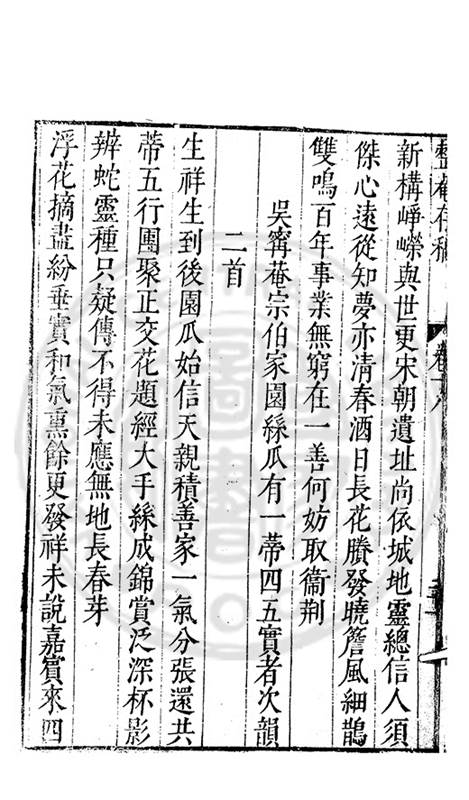 整菴存稿 卷十八
新構崢嶸與世更宋朝遺址尚依城地靈總信人須
傑心遠從知夢亦清春酒日長花賸發曉簷風細鵲
雙鳴百年事業無窮在一善何妨取衞荆
吳寗菴宗伯家園絲瓜有一蒂四五實者次韻
二首
生祥生到後園瓜始信天親積善家一氣分張還共
蒂五行團聚正交花題經大手絲成錦賞泛深杯影
辨蛇靈種只疑傳不得未應無地長春芽
浮花摘盡紛垂實和氣熏餘更發祥未說嘉賓來四